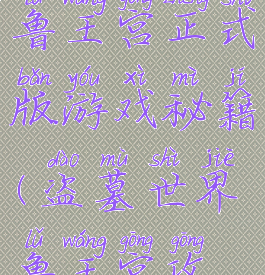 lǔ wáng gōng zhèng shì
鲁王宫正式
bǎn yóu xì mì jí
版游戏秘籍
dào mù shì jiè
(盗墓世界
lǔ wáng gōng gōng
鲁王宫攻